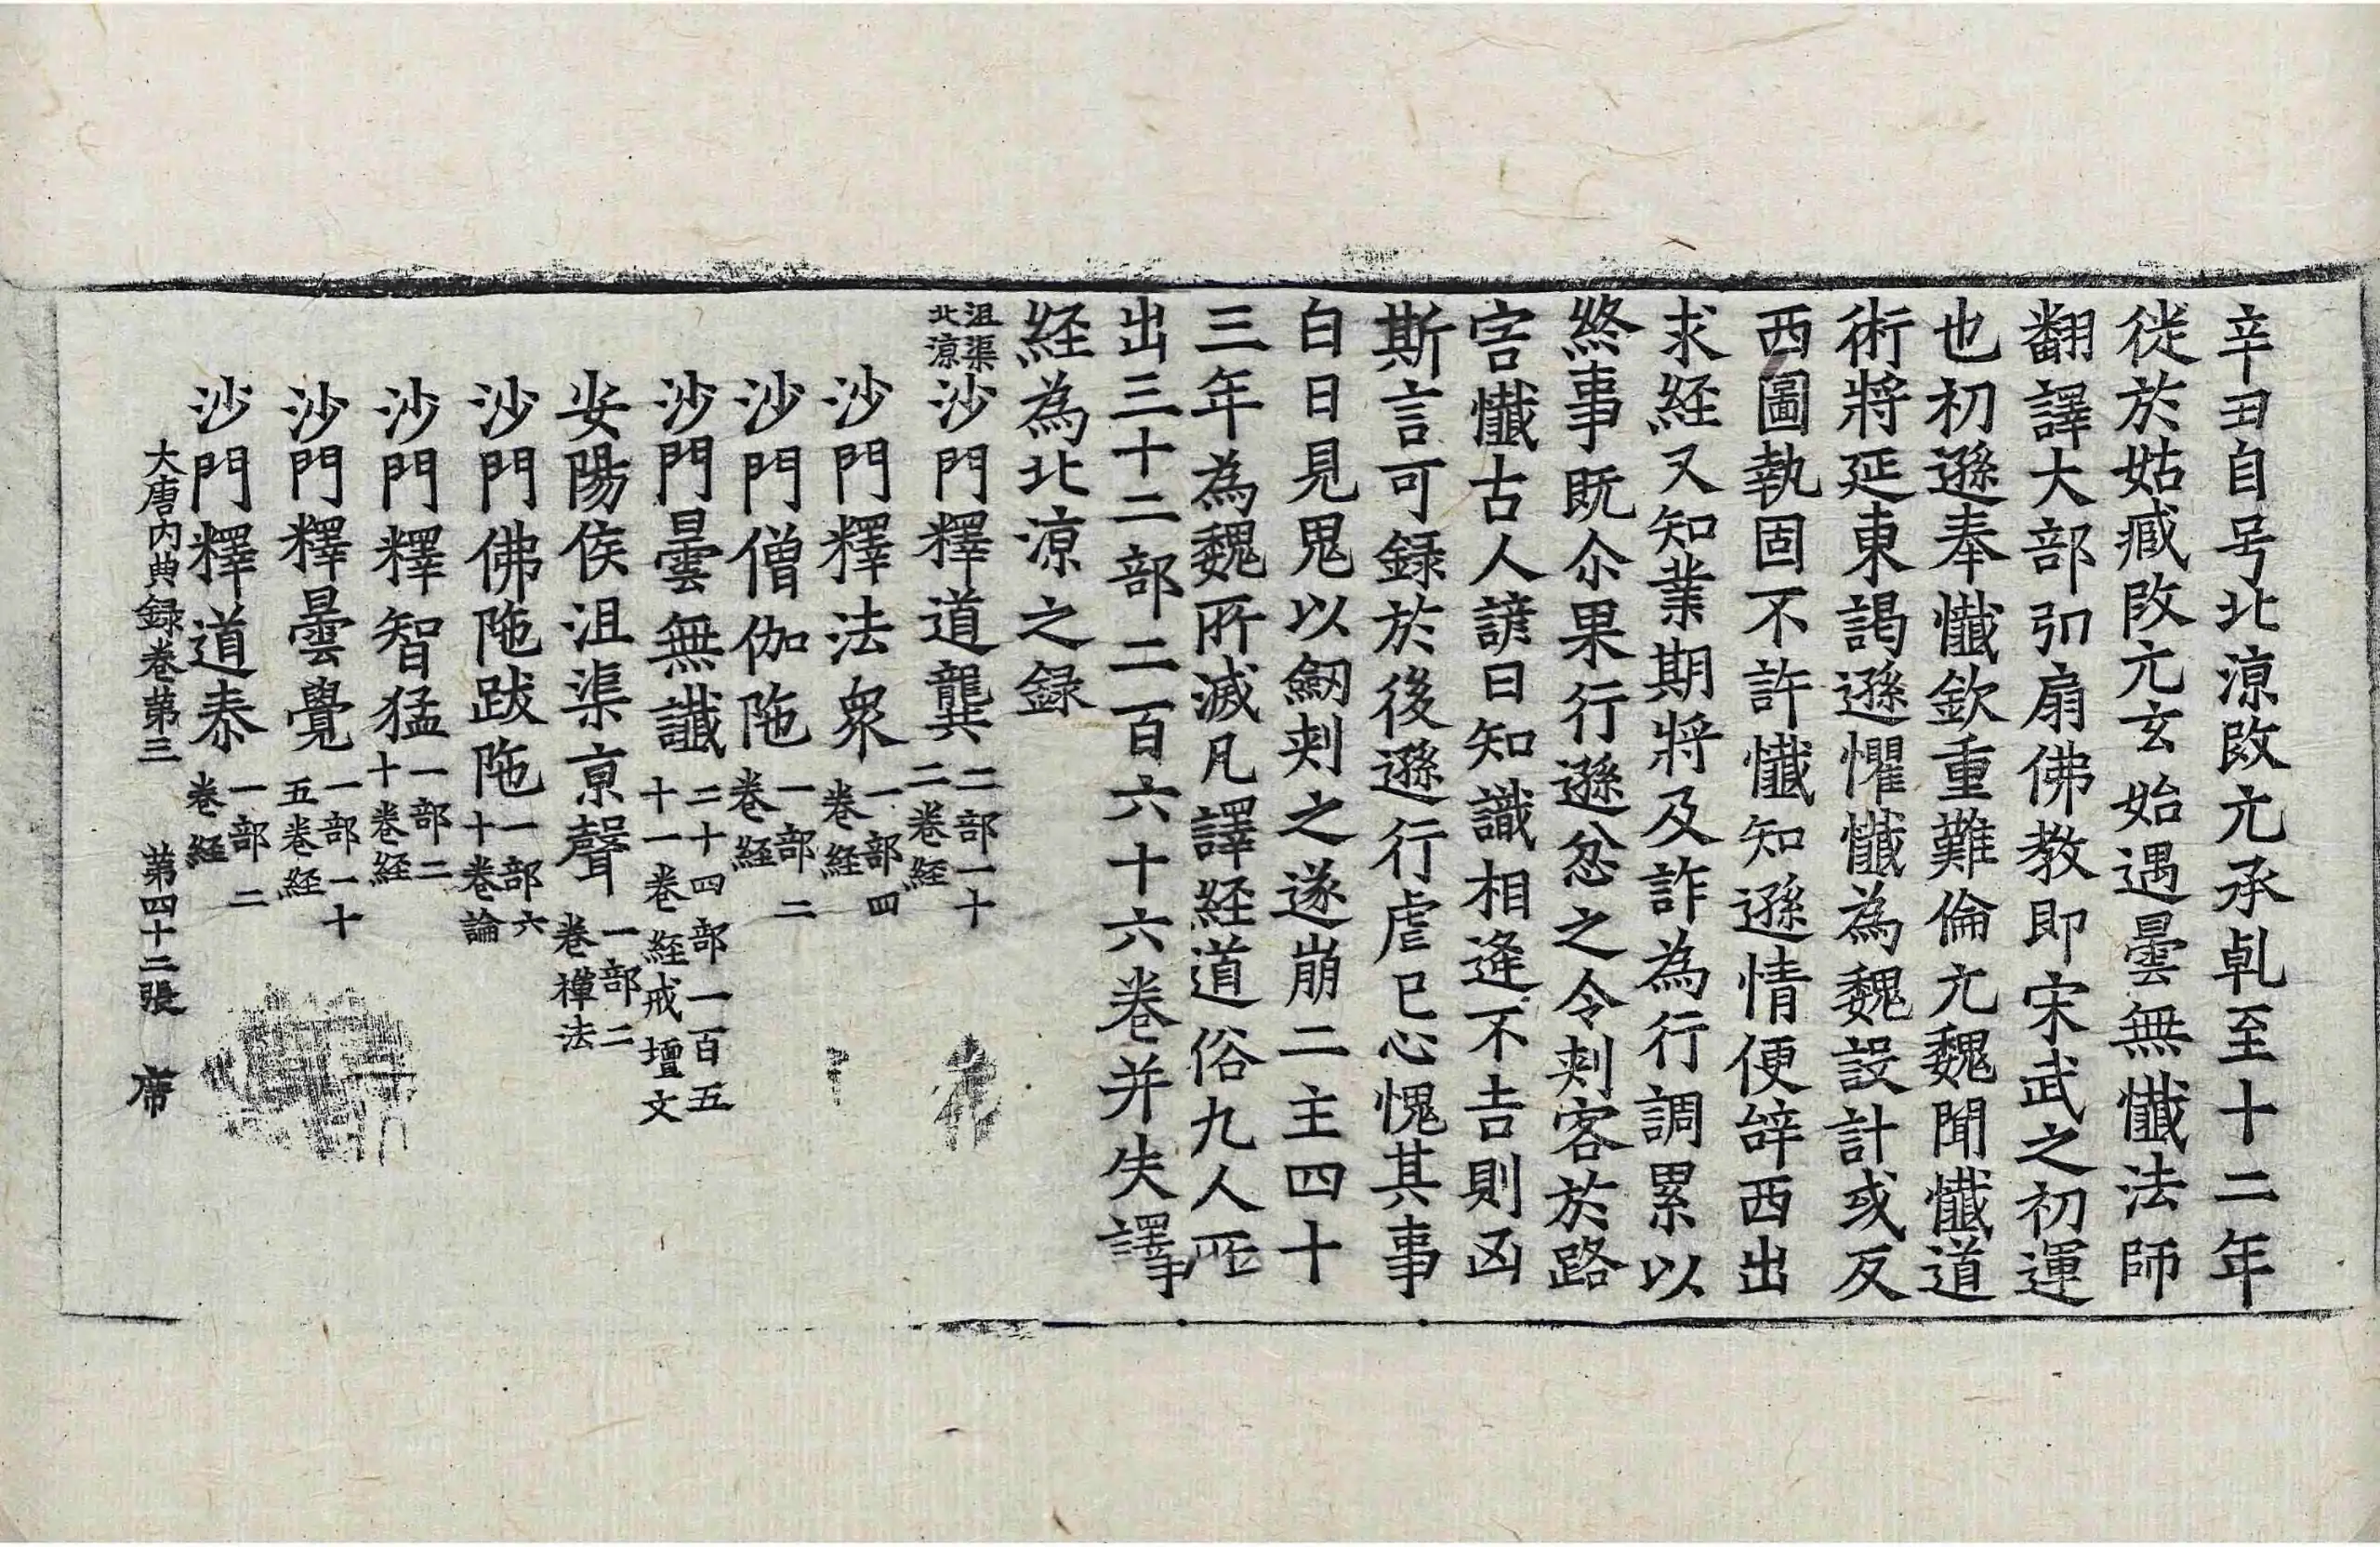 辛丑自号北涼改元承乹至十二年
徙於姑臧改元玄始遇曇無懴法師
翻譯大部弘扇佛教即宋武之初運
也初遜奉懴欽重難倫元魏聞懴道
術將延東謁遜懼懴為魏設計或反
西圖執固不許懴知遜情便辝西出
求経又知業期將及詐為行調累以
終事既尒果行遜忿之令刾客於路
害懴古人諺曰知識相逢不吉則凶
斯言可録於後遜行虐已心愧其事
白日見鬼以劒刾之遂崩二主四十
三年為魏所滅凡譯経道俗九人所
出三十二部二百六十六巻并失譯
経為北涼之録
沮渠北涼沙門釋道龔二部一十二巻経
沙門釋法衆一部四巻経
沙門僧伽陁一部二巻経
沙門曇無讖二十四部一百五十一巻経戒壇文
安陽侯沮渠京聲一部二巻禪法
沙門佛陁跋陁一部六十巻論
沙門釋智猛一部二十巻経
沙門釋曇覺一部一十五巻経
沙門釋道泰一部二巻経
大唐内典録巻第三　第四十二張　席